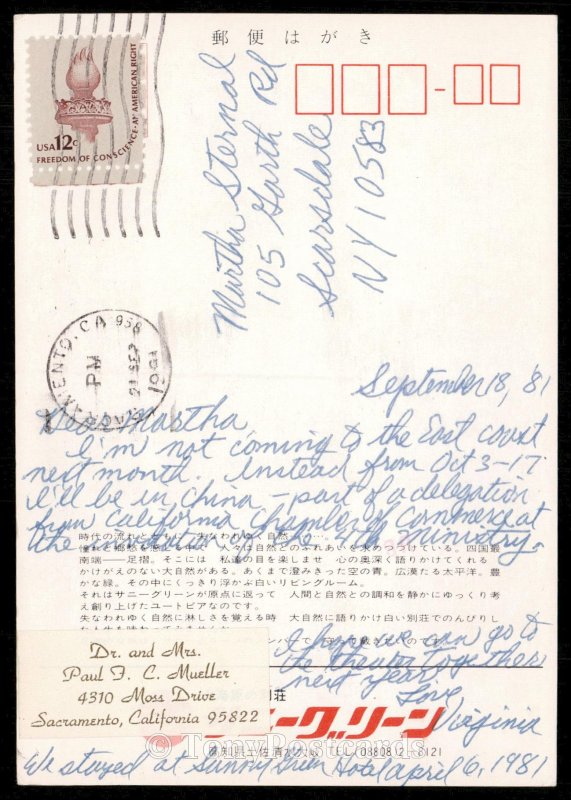 郵便はがき
USA 12c
FREEDOM OF CONSCIENCE-AN AMERICAN RIGHT
Martha Sternal
105 Garth Rd
Scarsdale
NY 10583
SACRAMENTO, CA 958
PM
21 SEP
1981
September 18, '81
Dear Martha
I'm not coming to the East coast
next month. Instead from Oct 3-17
I'll be in China - part of a delegation
from California Chamber of Commerce at
the invitation of the 4th Ministry.
時代の流れとともに 失なわれゆく自然
人々は自然とのふれあいを求めつづけている。四国最
南端——足摺。そこには 私達の目を楽しませ 心の奥深く語りかけてくれる
かけがえのない大自然がある。あくまで澄みきった空の青。広漠たる太平洋。豊
かな緑。その中にくっきり浮かぶ白いリビングルーム。
それはサニーグリーンが原点に返って 人間と自然との調和を静かにゆっくり考
え創り上げたユートピアなのです。
失なわれゆく自然に淋しさを覚える時 大自然に語りかけ白い別荘でのんびりし
I hope we can go to
the theater together
next year.
Love,
Virginia
Dr. and Mrs.
Paul F. C. Mueller
4310 Moss Drive
Sacramento, California 95822
ニーグリーン
高知県土佐清水市 TEL 08808(2)8121
© TonyPostcards
We stayed at Sunny Green Hotel April 6, 1981